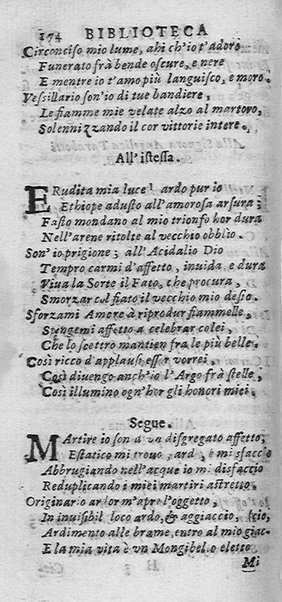 174 BIBLIOTECA
Circonciso mio lume, ahi ch'io t'adoro
Funerato frà bende oscure, e nere
E mentre io t'amo più languisco, e moro.
Vessillario son'io di tue bandiere,
Le fiamme mie velate alzo al martoro,
Solennizzando il cor vittorie intere.
All'istessa.
ERudita mia luce! ardo pur io
Ethiope adusto all'amorosa arsura;
Fasto mondano al mio trionfo hor dura
Nell'arene ritolte al vecchio obblio.
Son'io prigione; all'Acidalio Dio
Tempro carmi d'affetto, invida e dura
Viva la Sorte il Fato, che procura,
Smorzar col fiato il vecchio mio desio.
Sforzami Amore à riprodur fiammelle,
Spingemi affetto a celebrar colei,
Che lo scettro mantien fra le più belle.
Così ricco d'applausi esser vorrei,
Così divengo anch'io l'Argo frà stelle,
Così illumino ogn'hor gli honori miei.
Segue.
MArtire io son d'un disgregato affetto,
Estatico mi trovo, ardo, e mi sfaccio
Abbrugiando nell'acque io mi disfaccio
Reduplicando i miei martiri astretto.
Originario ardor m'apre l'oggetto,
In invisibil loco ardo, & aggiaccio, (cio,
Ardimento alle brame, entro al mio giac-
E la mia vita è un Mongibelo eletto
Mi